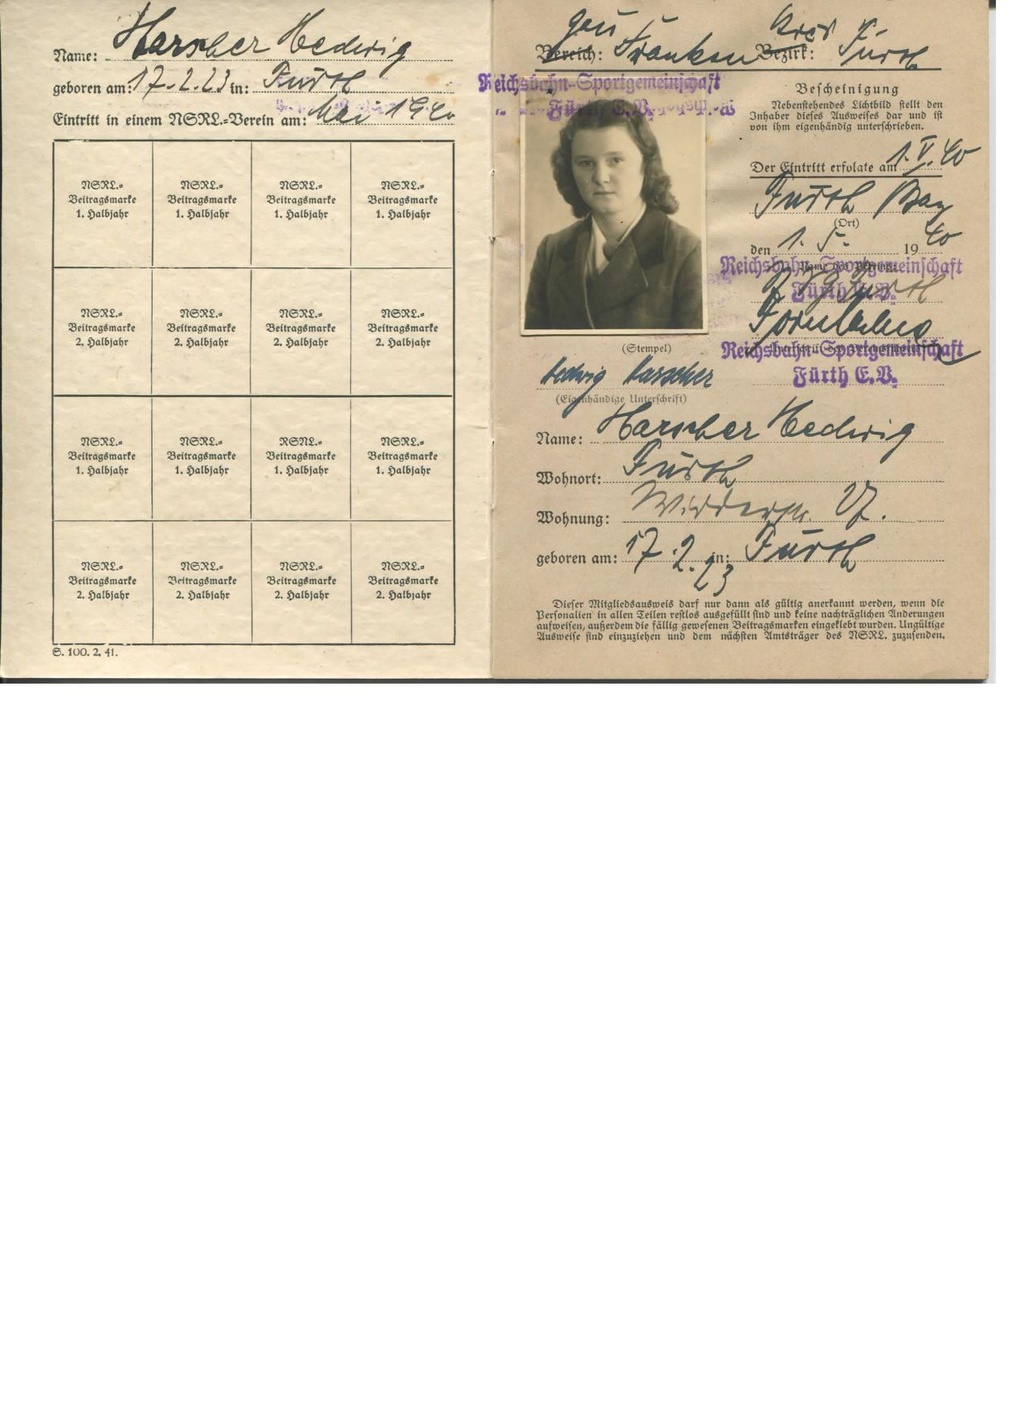 Name: Harscher Hedwig
geboren am: 17.2.23 in: Fürth
Eintritt in einem NSRL.-Verein am: Mai 1940
NSRL.- NSRL.- NSRL.- NSRL.-
Beitragsmarke Beitragsmarke Beitragsmarke Beitragsmarke
1. Halbjahr 1. Halbjahr 1. Halbjahr 1. Halbjahr
NSRL.- NSRL.- NSRL.- NSRL.-
Beitragsmarke Beitragsmarke Beitragsmarke Beitragsmarke
2. Halbjahr 2. Halbjahr 2. Halbjahr 2. Halbjahr
NSRL.- NSRL.- NSRL.- NSRL.-
Beitragsmarke Beitragsmarke Beitragsmarke Beitragsmarke
1. Halbjahr 1. Halbjahr 1. Halbjahr 1. Halbjahr
NSRL.- NSRL.- NSRL.- NSRL.-
Beitragsmarke Beitragsmarke Beitragsmarke Beitragsmarke
2. Halbjahr 2. Halbjahr 2. Halbjahr 2. Halbjahr
S. 100. 2. 41.
Gau Kreis
Bereich: Franken Bezirk: Fürth
Reichsbahn-Sportgemeinschaft
Fürth E.V.
Bescheinigung
Nebenstehendes Lichtbild stellt den
Inhaber dieses Ausweises dar und ist
von ihm eigenhändig unterschrieben.
Der Eintritt erfolgte am 1.V.40
Fürth Bay
(Ort)
den 1.5. 1940
Reichsbahn-Sportgemeinschaft
Fürth E.V.
Reichsbahn-Sportgemeinschaft
Fürth E.V.
(Stempel)
Hedwig Harscher
(Eigenhändige Unterschrift)
Name: Harscher Hedwig
Wohnort: Fürth
Wohnung: 27.
geboren am: 17.2.23 in: Fürth
Dieser Mitgliedsausweis darf nur dann als gültig anerkannt werden, wenn die
Personalien in allen Teilen restlos ausgefüllt sind und keine nachträglichen Änderungen
aufweisen, außerdem die fällig gewesenen Beitragsmarken eingeklebt wurden. Ungültige
Ausweise sind einzuziehen und dem nächsten Amtsträger des NSRL. zuzusenden.